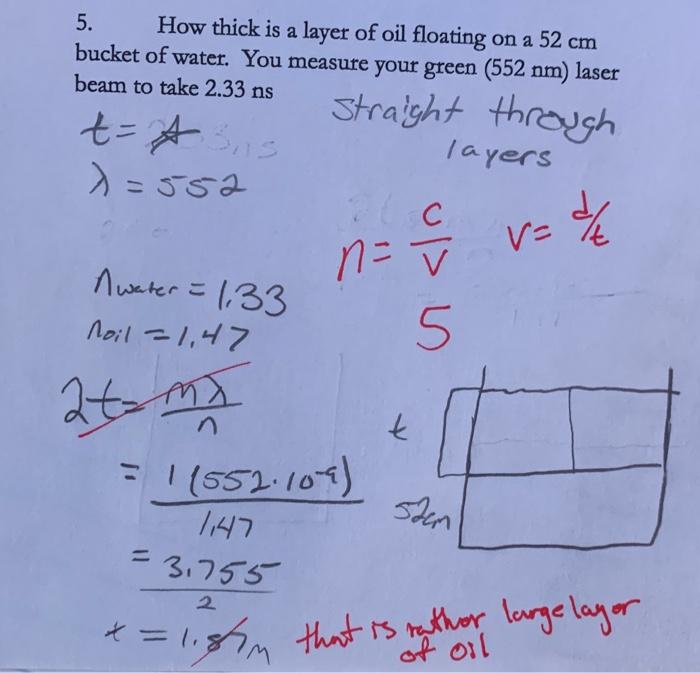 5. How thick is a layer of oil floating on a 52 cm
bucket of water. You measure your green (552 nm) laser
beam to take 2.33 ns
straight through
layers
t =
λ = 552
n = c/v v = d/t
n water = 1.33
n oil = 1.47
5
2t = mλ/n
t
= 1 (552·10⁻⁹)/1.47
52cm
= 3.755/2
t = 1.87m that is rather large layer
of oil